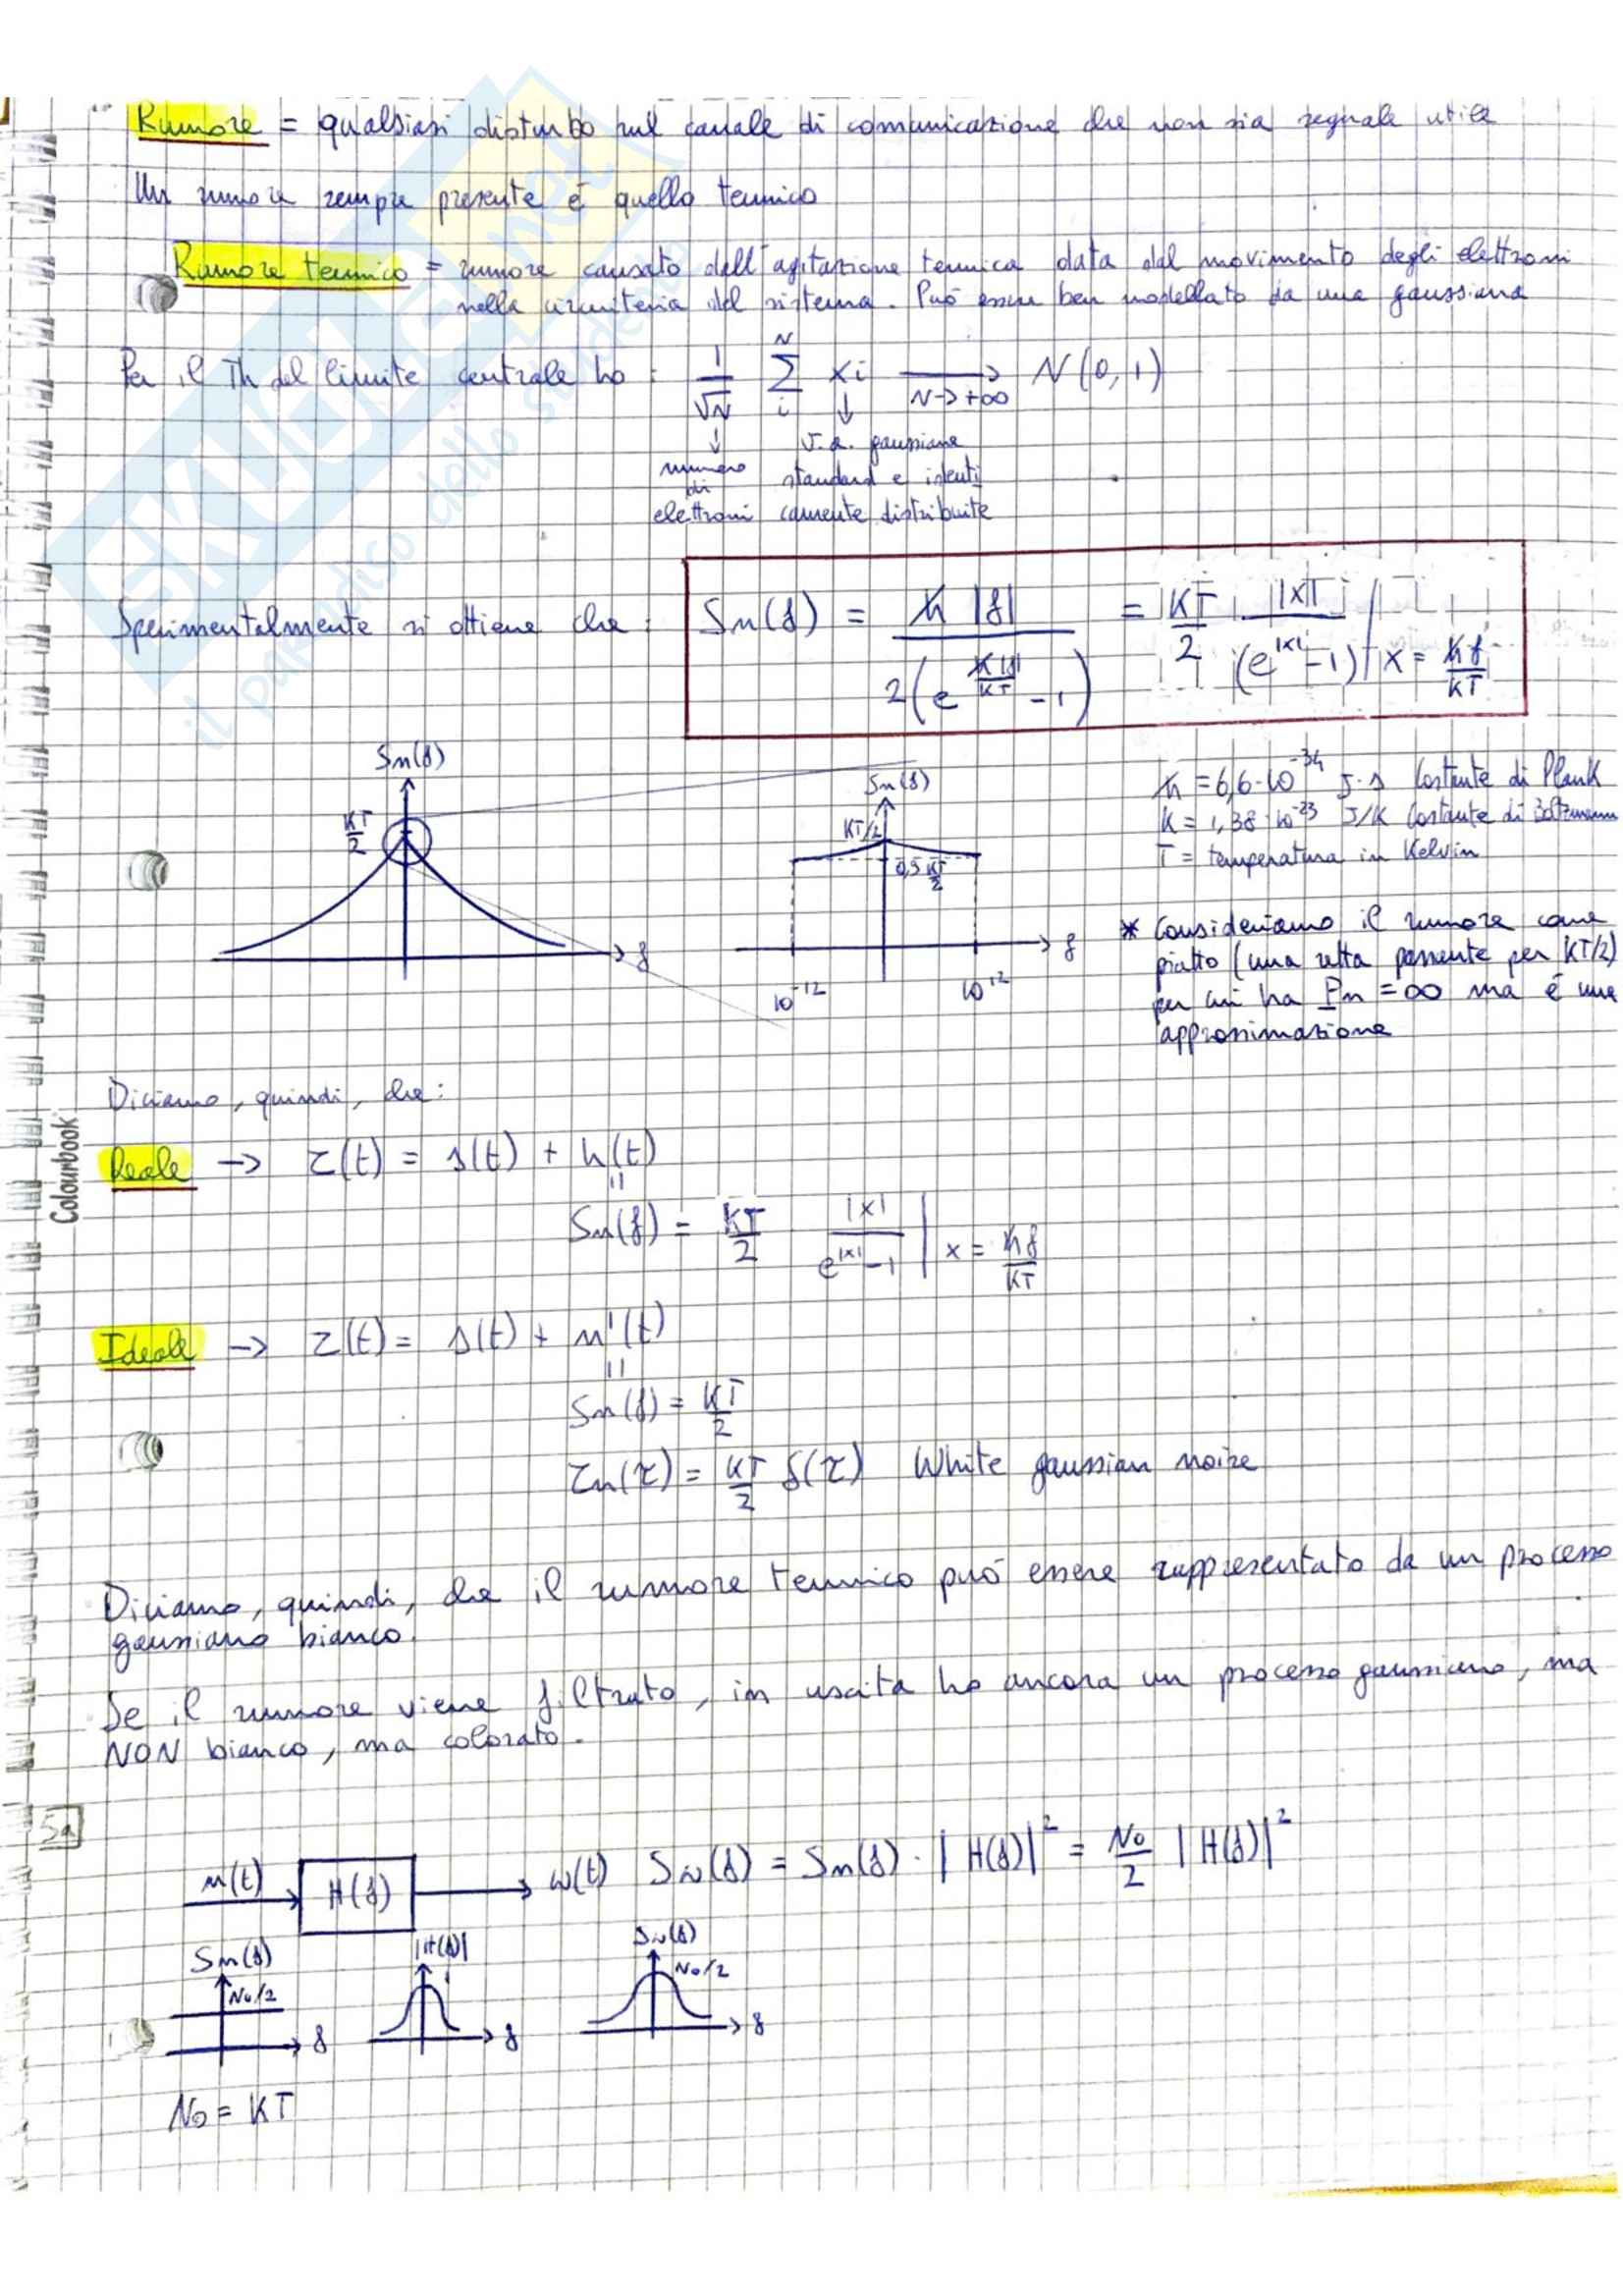 Rumore = qualsiasi disturbo sul canale di comunicazione che non sia segnale utile
Un rumore sempre presente è quello termico
Rumore termico = rumore causato dall'agitazione termica data dal movimento degli elettroni
nella circuiteria del sistema. Può essere ben modellato da una gaussiana
Per il Th del limite centrale ho : 1/√N Σ_i^N xi → N→+∞ N(0,1)
numero di elettroni
v.a. gaussiane standard e identicamente distribuite
Sperimentalmente si ottiene che : Sn(f) = ħ|f| / 2(e^(ħ|f|/KT) - 1) = KT/2 · |x| / (e^|x| - 1) | x = ħf/KT
Sn(f)
KT/2
f
Sn(f)
KT/2
0,5 KT/2
10^-12
10^12
f
ħ = 6,6·10^-34 J·s Costante di Plank
K = 1,38·10^-23 J/K Costante di Boltzmann
T = temperatura in Kelvin
* Consideriamo il rumore come
piatto (una retta passante per KT/2)
per cui ha Pn = ∞ ma è una
approssimazione
Diciamo, quindi, che:
Reale → r(t) = s(t) + n(t)
Sn(f) = KT/2 |x| / (e^|x| - 1) | x = ħf/KT
Ideale → r(t) = s(t) + n'(t)
Sn(f) = KT/2
rn(τ) = KT/2 δ(τ) White gaussian noise
Diciamo, quindi, che il rumore termico può essere rappresentato da un processo
gaussiano bianco.
Se il rumore viene filtrato, in uscita ho ancora un processo gaussiano, ma
NON bianco, ma colorato.
5a
n(t) H(f) w(t) Sw(f) = Sn(f) · |H(f)|² = No/2 |H(f)|²
Sn(f)
No/2
f
|H(f)|
f
Sw(f)
No/2
f
No = KT
Colourbook
SKUOLA.net
il paradiso dello studente